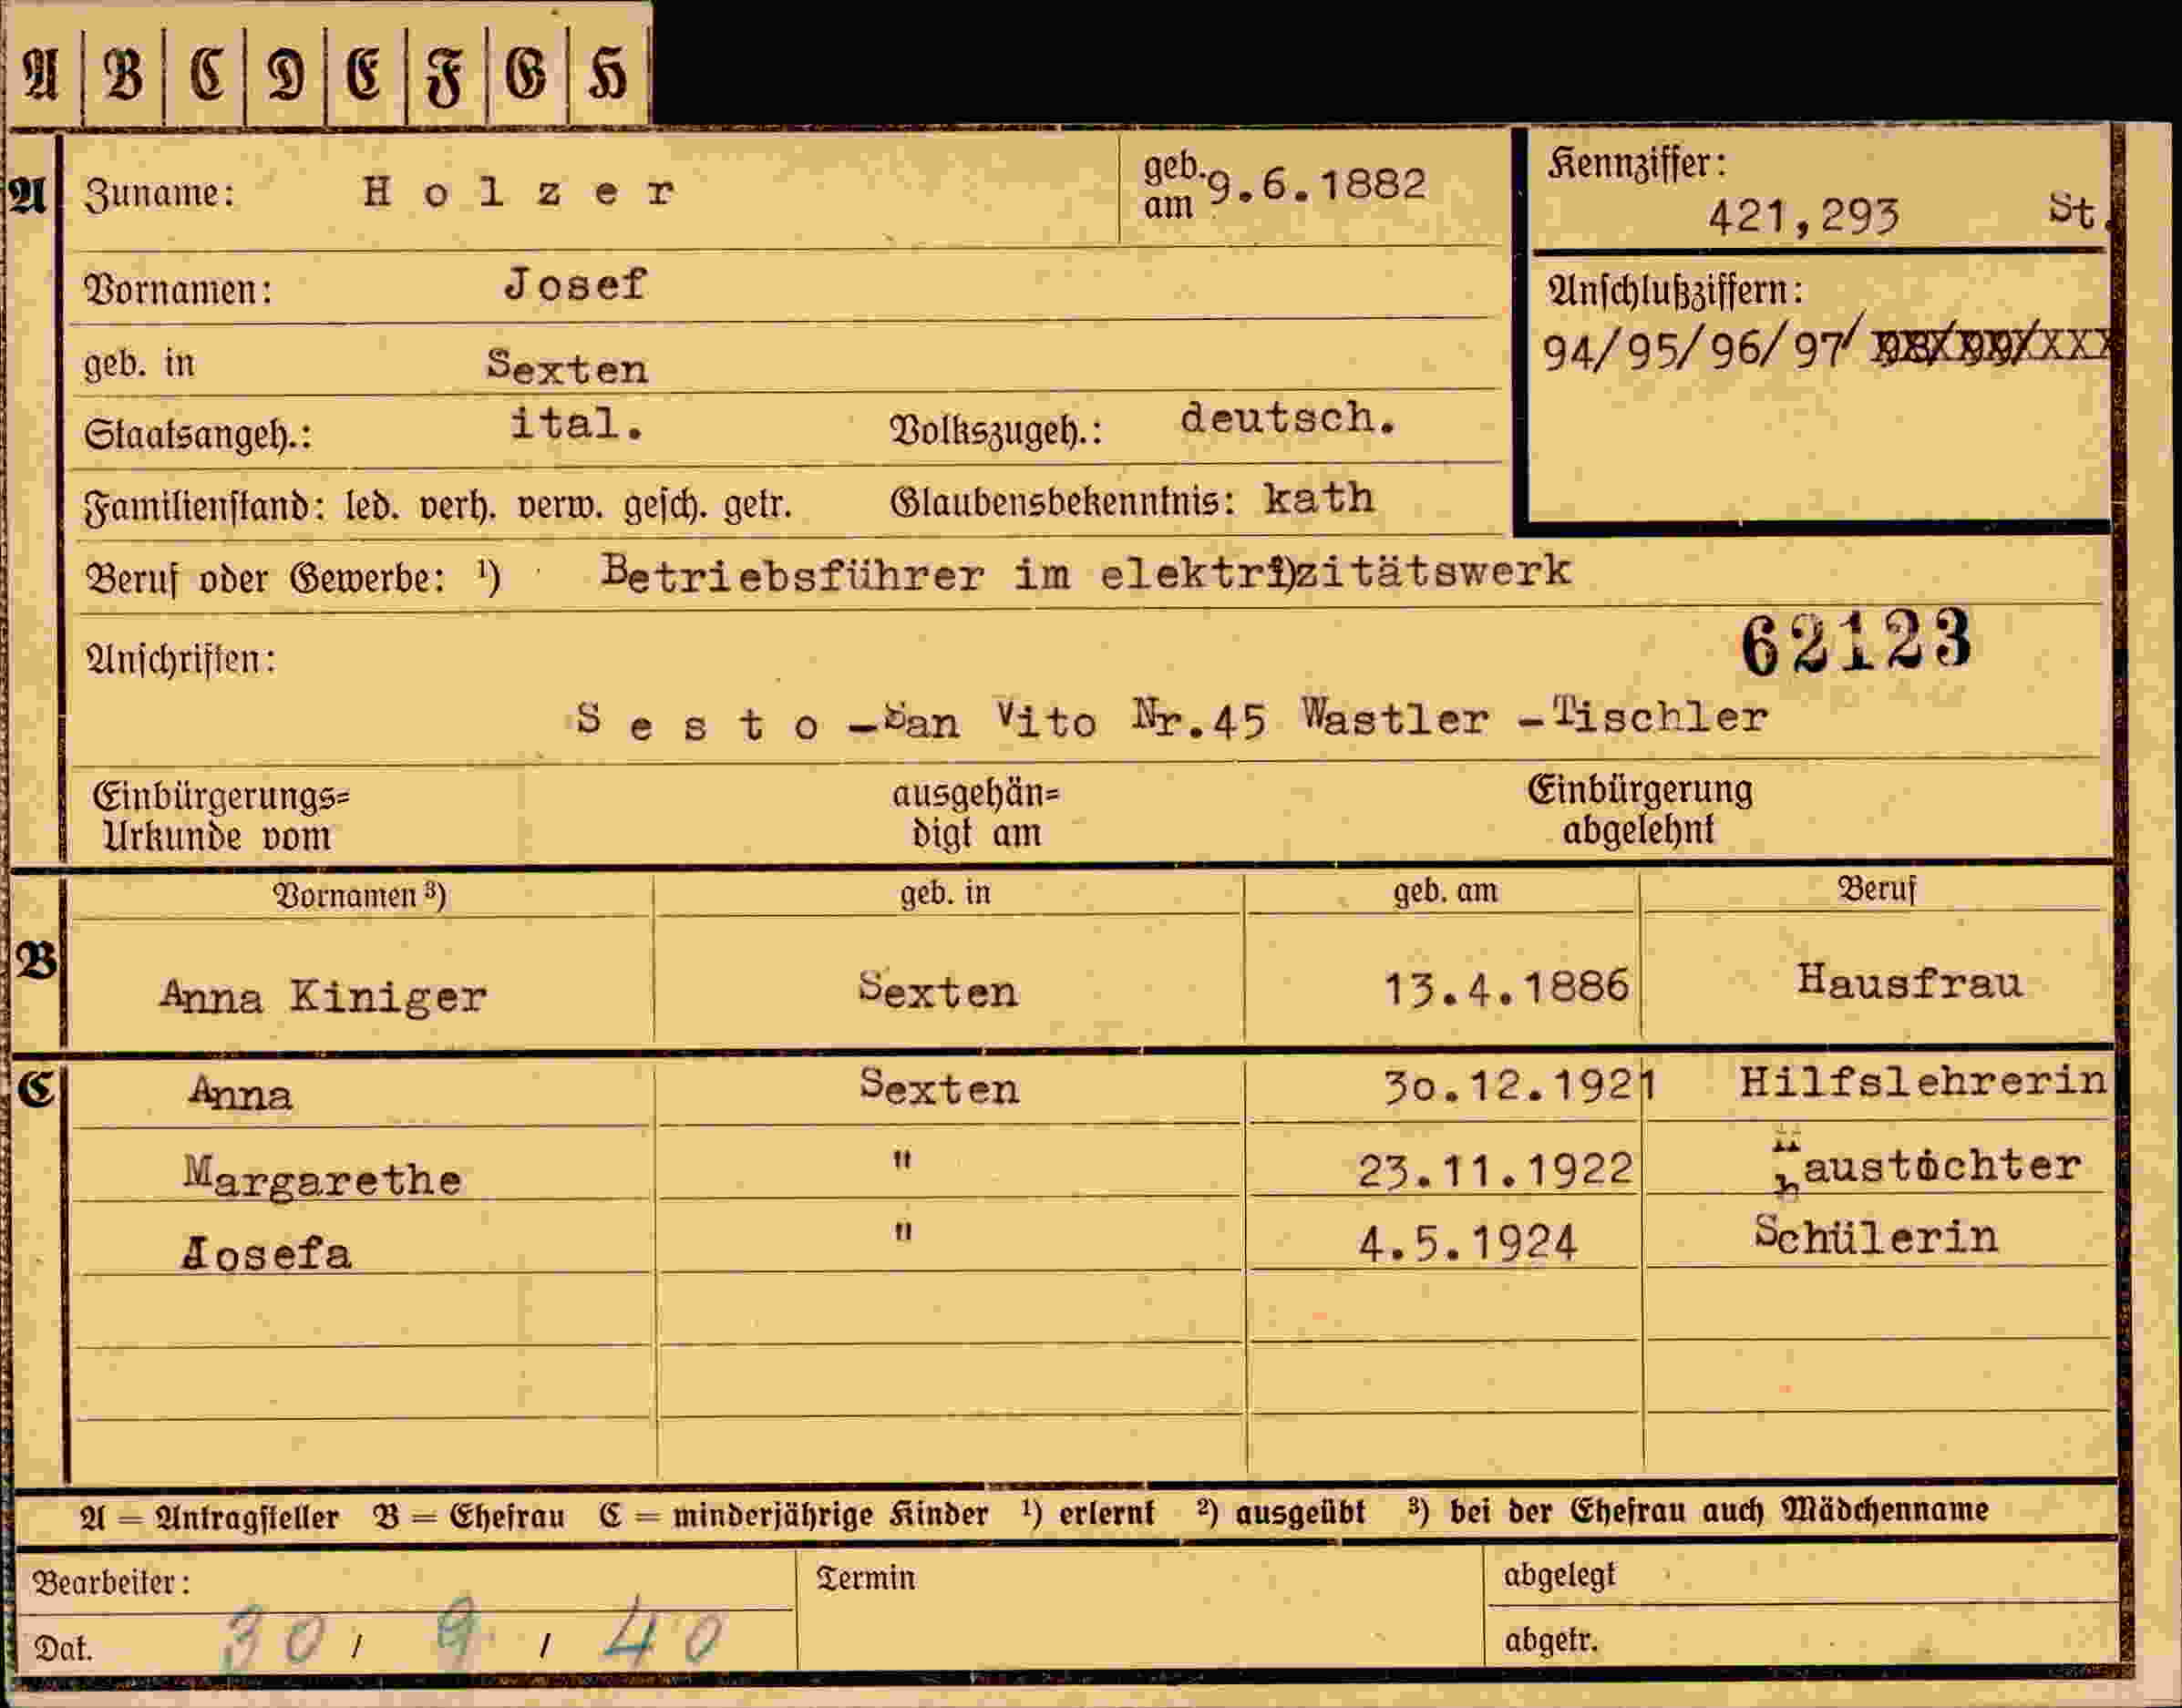 A B C D E F G H
A Zuname: Holzer geb. am 9.6.1882 Kennziffer: 421,293 St.
Vornamen: Josef Anschlußziffern:
geb. in Sexten 94/95/96/97/
Staatsangeh.: ital. Volkszugeh.: deutsch.
Familienstand: led. verh. verw. gesch. getr. Glaubensbekenntnis: kath
Beruf oder Gewerbe: ¹) Betriebsführer im elektrizitätswerk
62123
Anschriften:
Sesto -San Vito Nr.45 Wastler -Tischler
Einbürgerungs= ausgehän= Einbürgerung
Urkunde vom digt am abgelehnt
Vornamen ³) geb. in geb. am Beruf
B Anna Kiniger Sexten 13.4.1886 Hausfrau
C Anna Sexten 30.12.1921 Hilfslehrerin
Margarethe " 23.11.1922 haustöchter
Josefa " 4.5.1924 Schülerin
A = Antragsteller B = Ehefrau C = minderjährige Kinder ¹) erlernt ²) ausgeübt ³) bei der Ehefrau auch Mädchenname
Bearbeiter: Termin abgelegt
Dat. 30 / 9 / 40 abgetr.